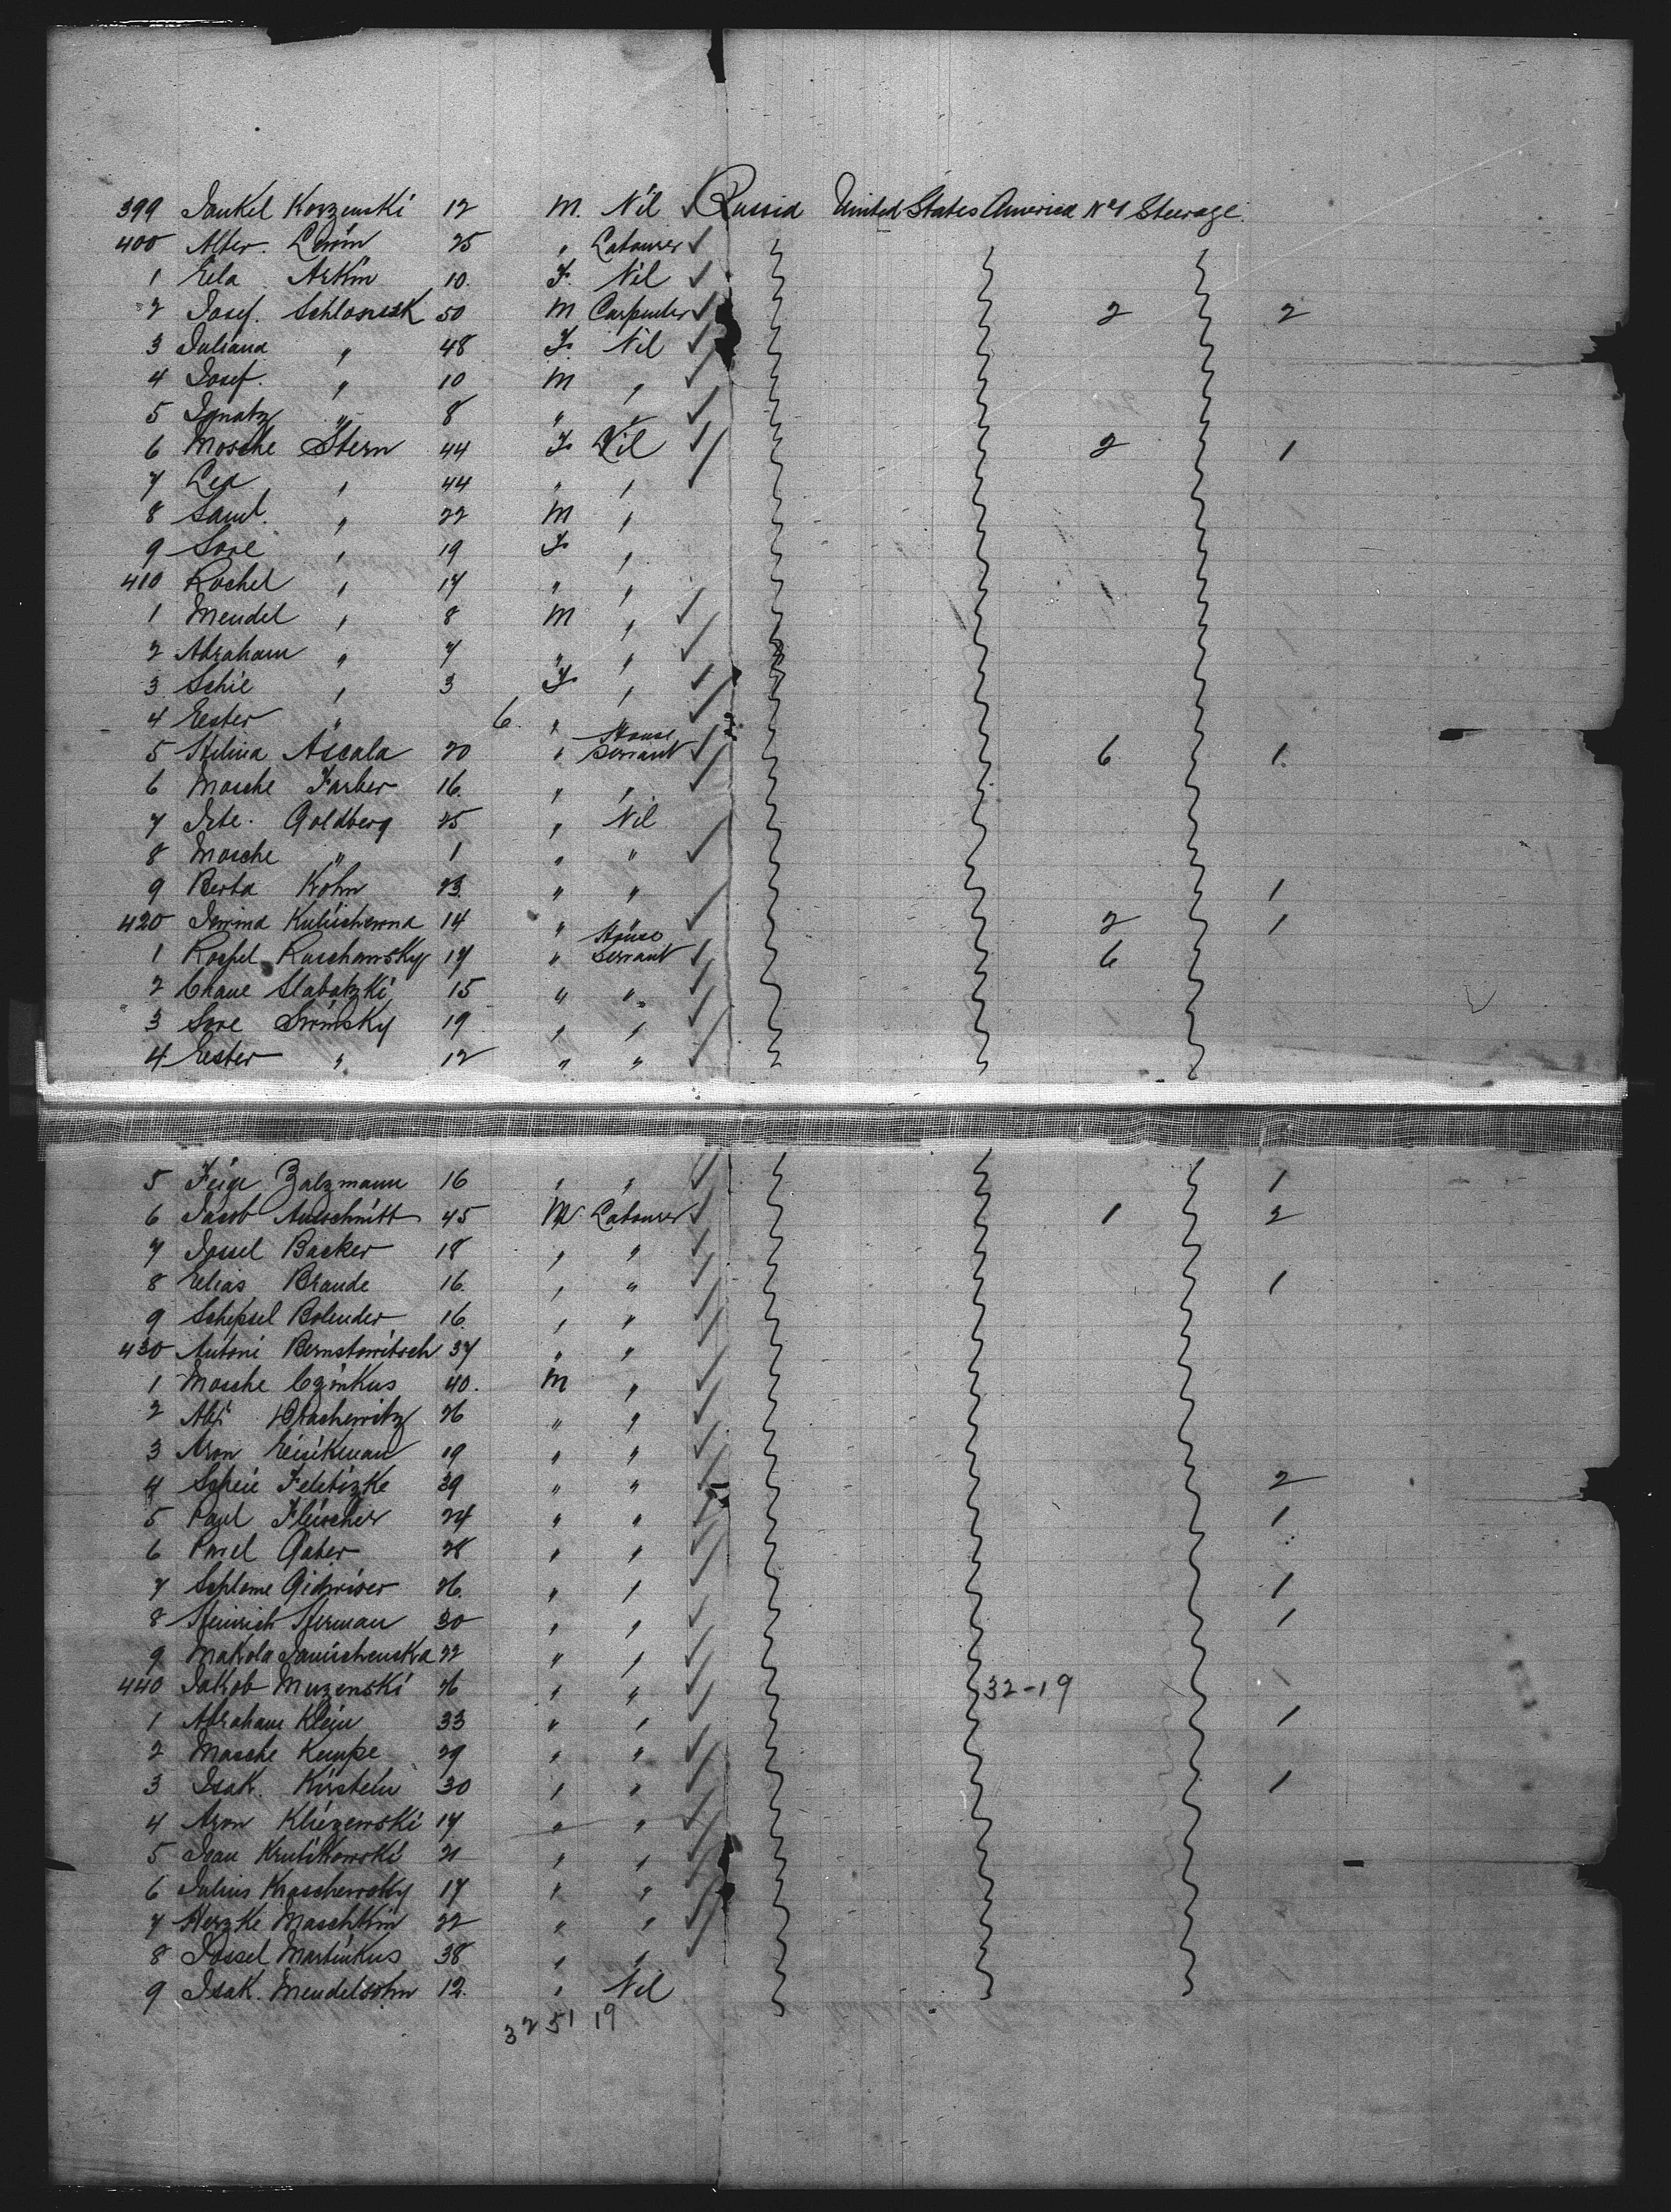 399 Jankel Korzenski 12 M. Nil Russia United States America No 1 Steerage
400 Alter Lewin 25 " Labourer
1 Eila Arkin 10. F. Nil
2 Josef. 50 M Carpenter 2 2
3 Juliana " 48 F. Nil
4 Josef. " 10 M "
5 Ignatz " 8 " "
6 Mosche Stern 44 F Nil 2 1
7 Lea " 44 " "
8 Saml. " 22 M "
9 Sore " 19 F "
410 Rochel " 17 " "
1 Mendel " 8 M "
2 Abraham " 7 " "
3 Schie " 3 F "
4 Eester " 6. "
5 Ascala 20 " House Servant 6 1
6 Mosche Farber 16. " "
7 Goldberg 25 " Nil
8 Mosche " 1 " "
9 Berta Kohn 23. " " 1
420 14 " " 2 1
1 Rochel Ruschowsky 17 " House Servant 6
2 Chane Slabotzki 15 " "
3 Sore Swinsky 19 " "
4 Eester " 12 " "
5 Feige Zalzmann 16 " " 1
6 Jacob Ausschnitt 45 M Labourer 1 2
7 Jossel Backer 18 " "
8 Elias Braude 16. " " 1
9 Schepsel Bolender 16. " "
430 Antoni Bernstowitsch 37 " "
1 Mosche Czinkus 40. M "
2 26 " "
3 Aron Eisikman 19 " "
4 Scheie Feletizke 39 " " 2
5 Paul Fleischer 24 " " 1
6 Pavel Gaber 28 " "
7 Schlome 26. " " 1
8 Heinrich Herman 30 " " 1
9 Makola 22 " "
440 Jakob Muzenski 26 " " 32-19
1 Abraham Klein 33 " " 1
2 Mosche Kempe 29 " "
3 Isak. Kirstein 30 " " 1
4 Aron Kliezewski 17 " "
5 Ivan Krulikowski 21 " "
6 Julius Kraschewsky 17 " "
7 Herzke Maschkin 22 " "
8 Jossel Martinkus 38 " "
9 Isak. Mendelsohn 12. " Nil
32 51 19